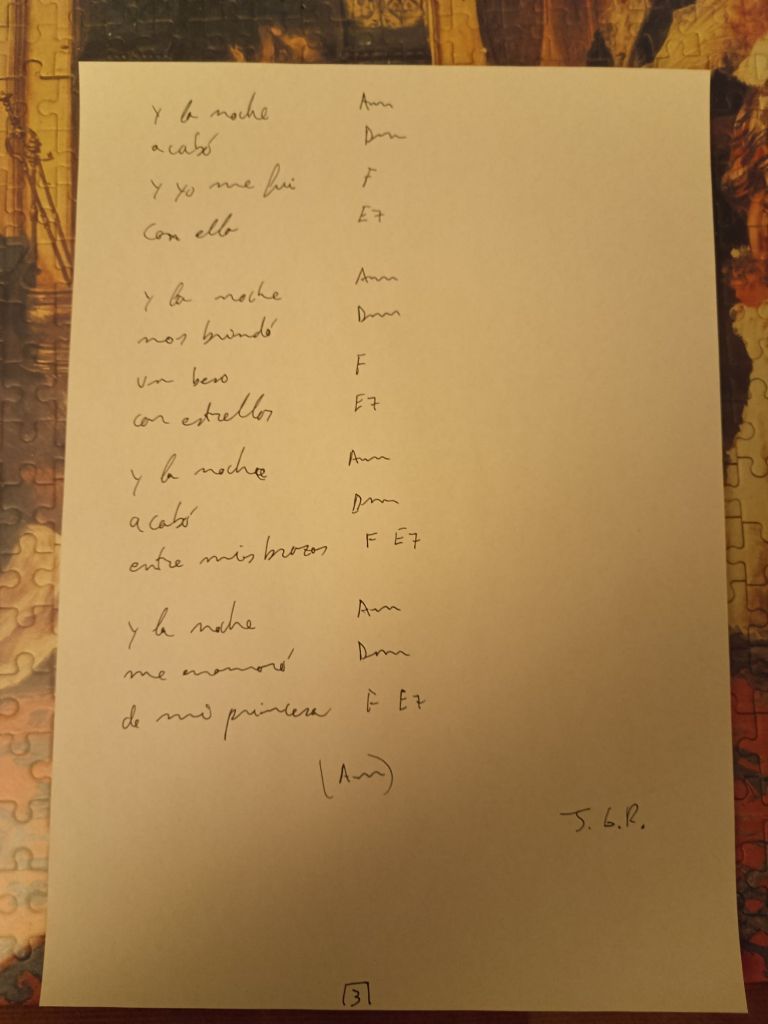 y la noche Am
acabó Dm
y yo me fui F
con ella E7
y la noche Am
nos brindó Dm
un beso F
con estrellas E7
y la noche Am
acabó Dm
entre mis brazos F E7
y la noche Am
me enamoró Dm
de mi princesa F E7
(Am)
J. G. R.
3